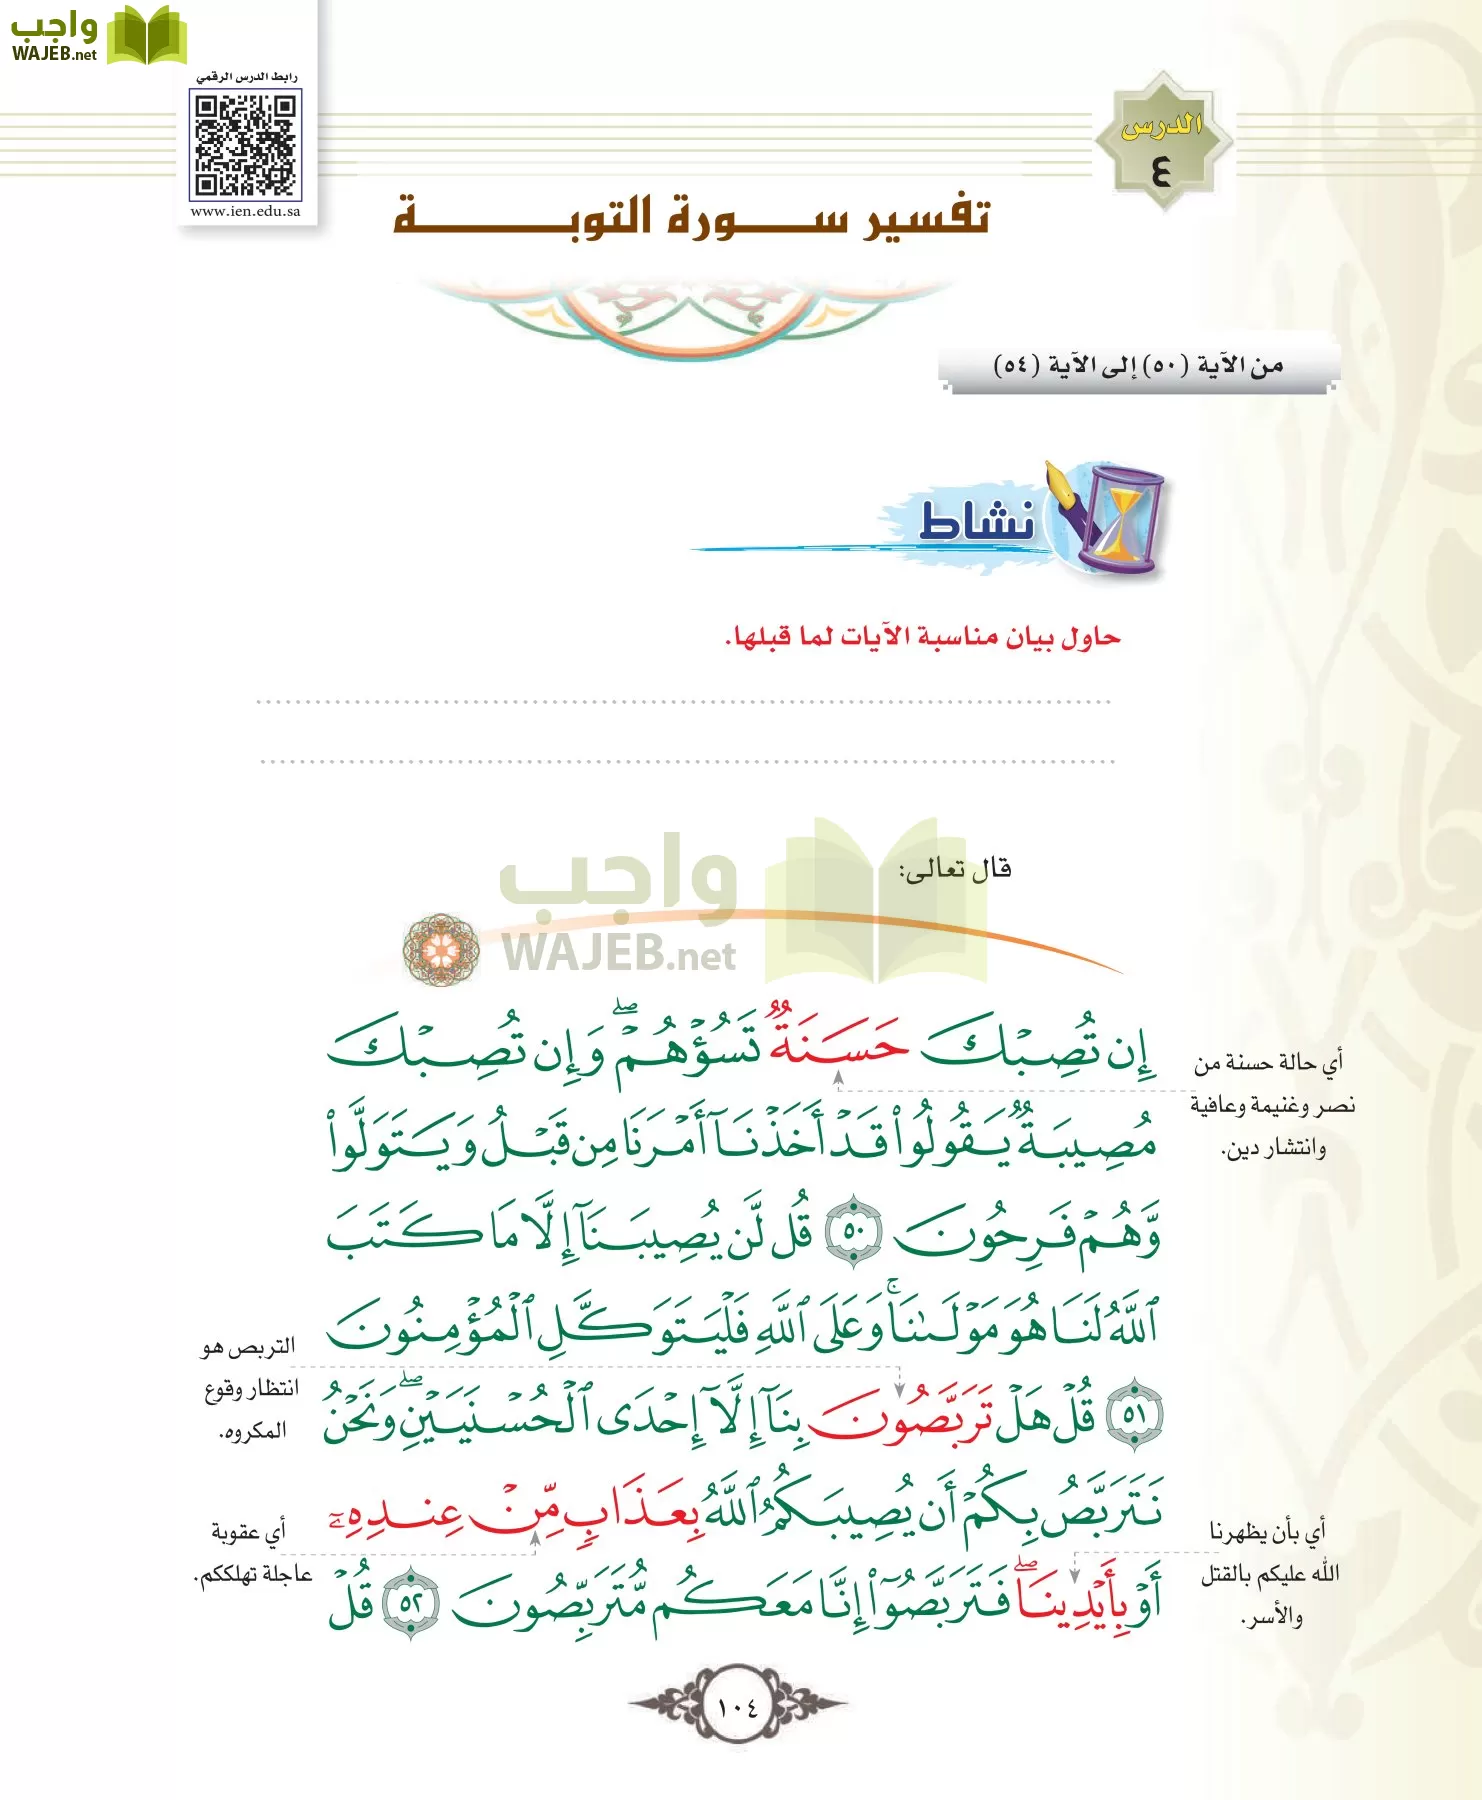 واجب
WAJEB.net
رابط الدرس الرقمي
www.ien.edu.sa
الدرس
٤
تفسير ســورة التوبــة
من الآية (٥٠) إلى الآية (٥٤)
نشاط
حاول بيان مناسبة الآيات لما قبلها.
قال تعالى:
واجب
WAJEB.net
إِن تُصِبْكَ حَسَنَةٌ تَسُؤْهُمْ ۖ وَإِن تُصِبْكَ
مُصِيبَةٌ يَقُولُوا۟ قَدْ أَخَذْنَآ أَمْرَنَا مِن قَبْلُ وَيَتَوَلَّوا۟
وَّهُمْ فَرِحُونَ ٥٠ قُل لَّن يُصِيبَنَآ إِلَّا مَا كَتَبَ
ٱللَّهُ لَنَا هُوَ مَوْلَىٰنَا ۚ وَعَلَى ٱللَّهِ فَلْيَتَوَكَّلِ ٱلْمُؤْمِنُونَ
٥١ قُلْ هَلْ تَرَبَّصُونَ بِنَآ إِلَّآ إِحْدَى ٱلْحُسْنَيَيْنِ ۖ وَنَحْنُ
نَتَرَبَّصُ بِكُمْ أَن يُصِيبَكُمُ ٱللَّهُ بِعَذَابٍ مِّنْ عِندِهِۦٓ
أَوْ بِأَيْدِينَا ۖ فَتَرَبَّصُوٓا۟ إِنَّا مَعَكُم مُّتَرَبِّصُونَ ٥٢ قُلْ
أي حالة حسنة من
نصر وغنيمة وعافية
وانتشار دين.
التربص هو
انتظار وقوع
المكروه.
أي عقوبة
عاجلة تهلككم.
أي بأن يظهرنا
الله عليكم بالقتل
والأسر.
١٠٤